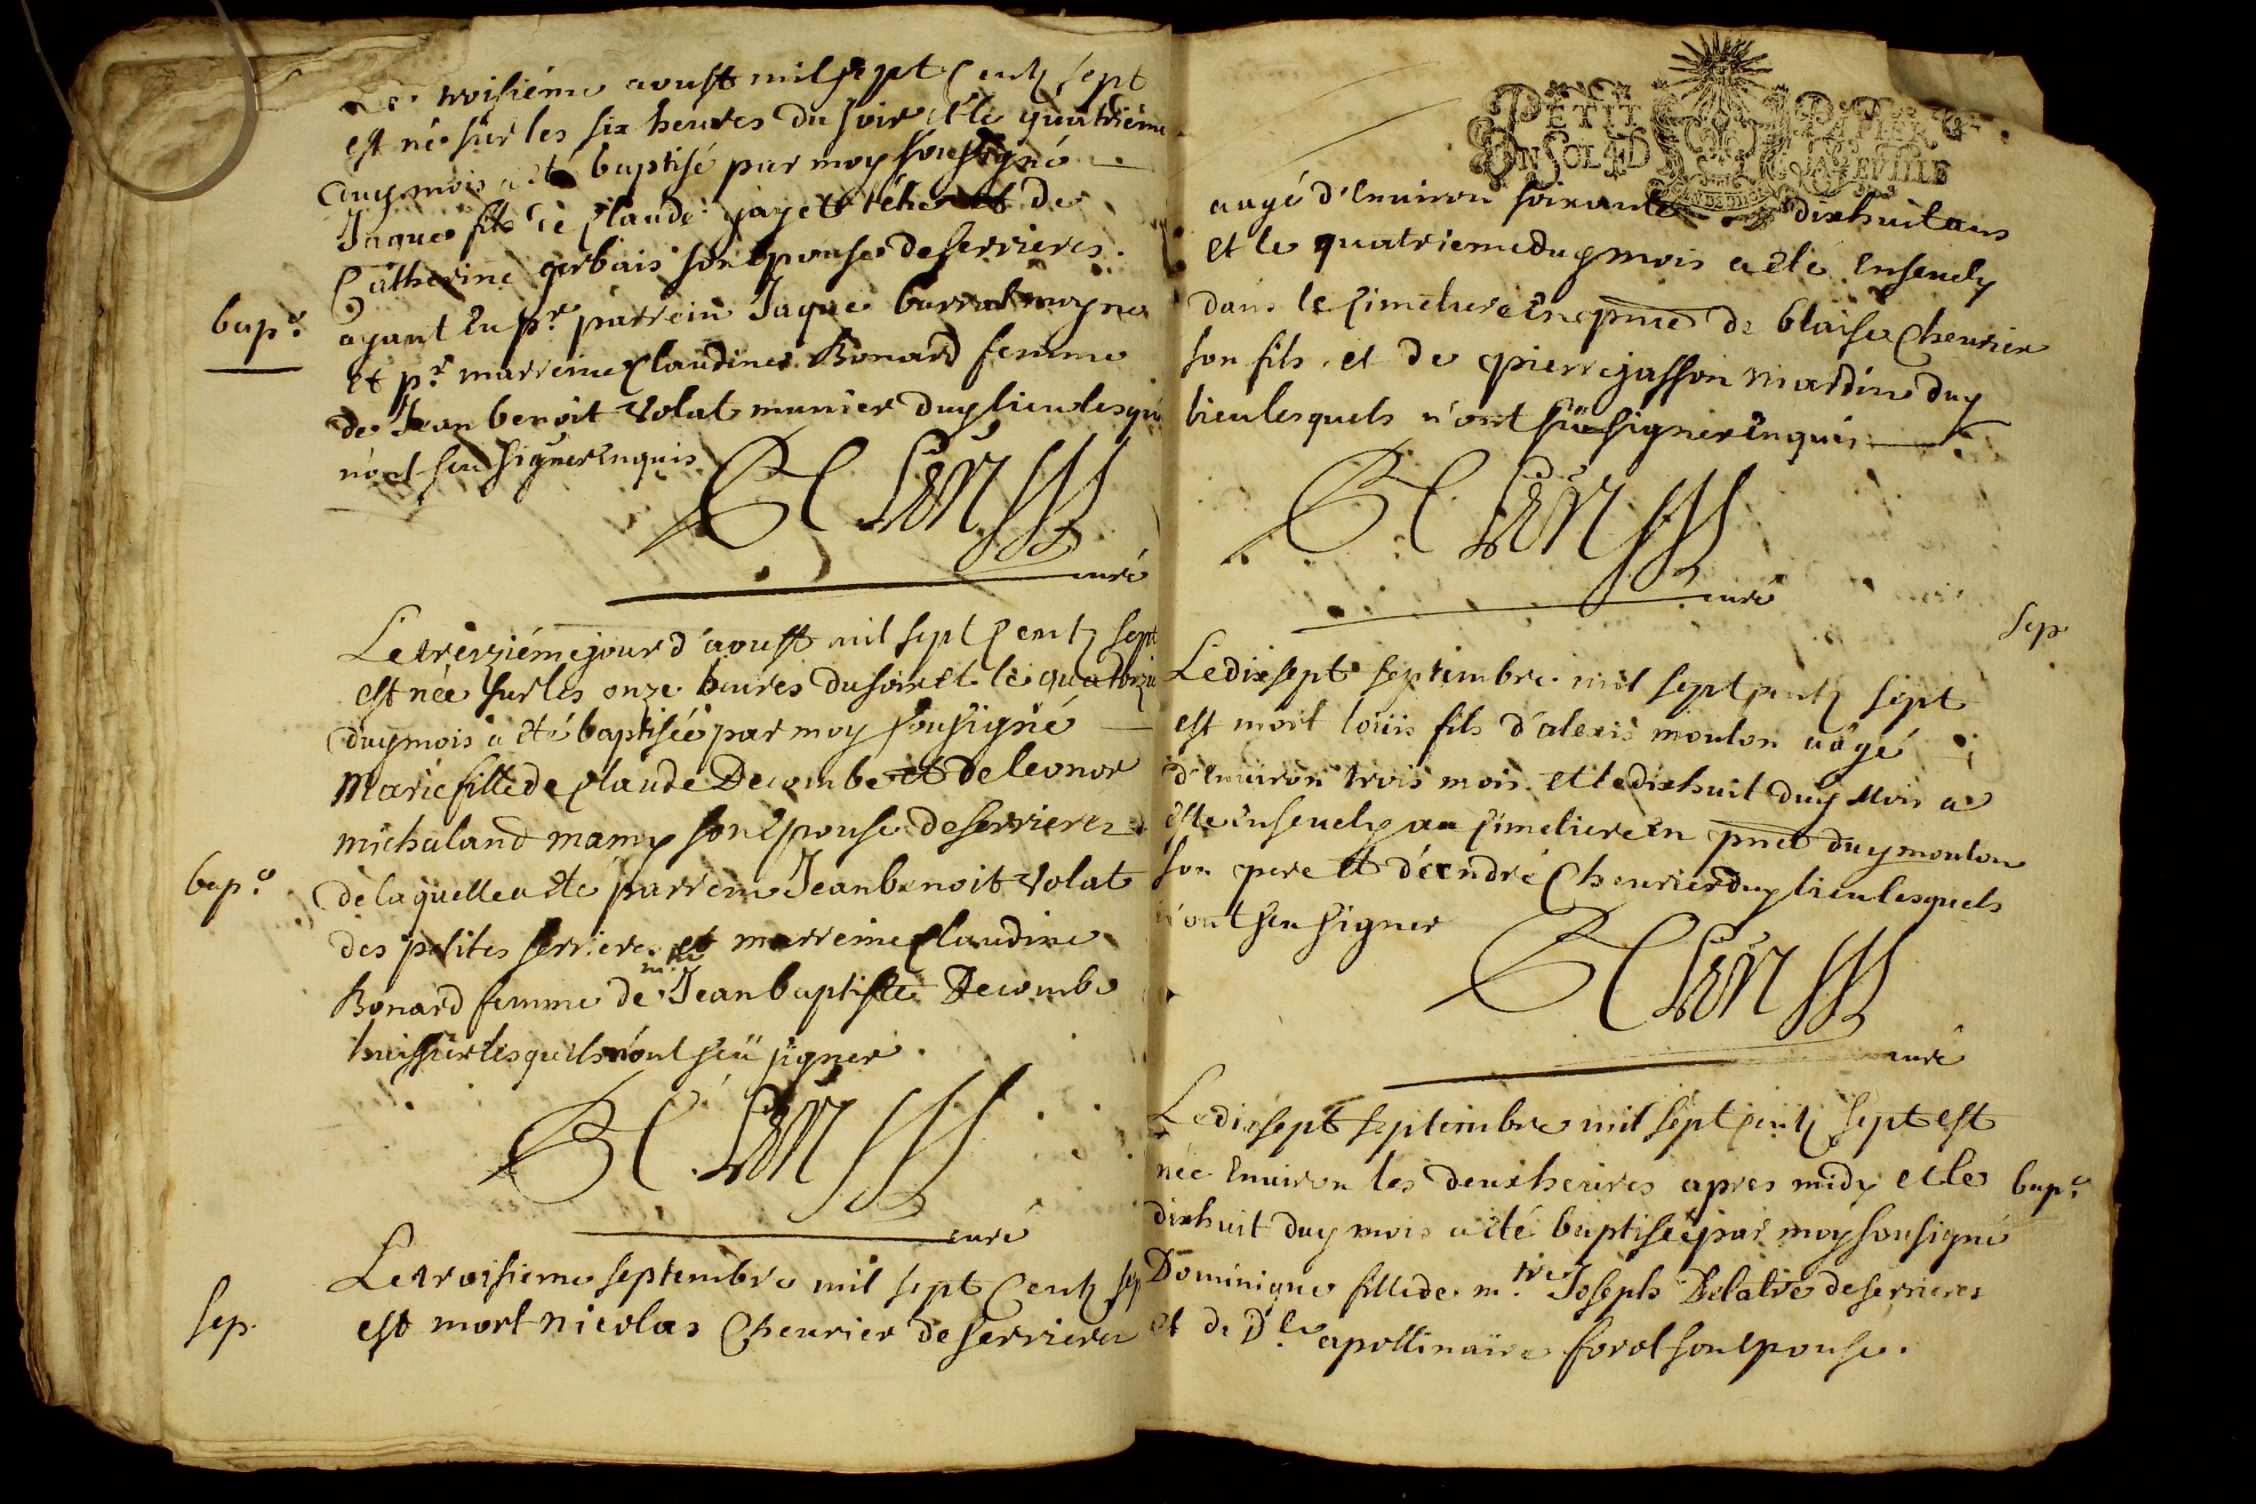 Le troisiéme aoust mil sept Centz sept
est né sur les six heures du soir et le quatriéme
duy mois a eté baptisé par moy sousigné
Iaque fils de Claude et de
Catherine gerbais son epouse de serrieres
bap.e
ayant eu pr parrein Iaque barrat
et pr marreine Claudine Bonard femme
de Jean benoit Volat munier duy lieu lesq
n'ont seu signer enquis
curé
Le treiziéme jour d'aoust mil sept Centz sept
est née sur les onze heures du soir et le quatorzie
duy mois a eté baptiséé par moy sousigné
Marie fille de Claude Decombe et de leonor
michaland mamy son epouse de serrieres
bap.e
de laquelle a eté parrein Jean benoit Volat
des petites serriere et marreine Claudine
Bonard femme de mtre Jean baptiste Decombe
huissier lesquels n'ont seü signer.
curé
Le troisieme septembre mil sept Centz sep
sep.
est mort nicolas Cheurier de serrieres
PETIT PAPIER
UN SOL 4 D LA FEUILLE
aagé d'enuiron soixante dixhuit ans
et le quatrieme duy mois a eté enseuely
dans le Cimetiere en pnce de blaise Cheurier
son fils et de pierre jasson mardin duy
lieu lesquels n'ont sü signer enquis
curé
sep.
Le dixsept septembre mil sept centz sept
est mort loüis fils d'alexis moulon aagé
d'enuiron trois mois et le dixhuit duy mois a
esté enseuely au Cimetiere en pnce duy moulon
son pere et d'andré Cheurier duy lieu lesquels
n'ont seu signer
curé
Le dixsept septembre mil sept centz sept est
née enuiron les deux heures apres midy et le
bap.e
dixhuit duy mois a eté baptisée par moy sousigné
Dominique fille de m.tre Joseph Delatre de serrieres
et de D.lle apollinaire forot son epouse.